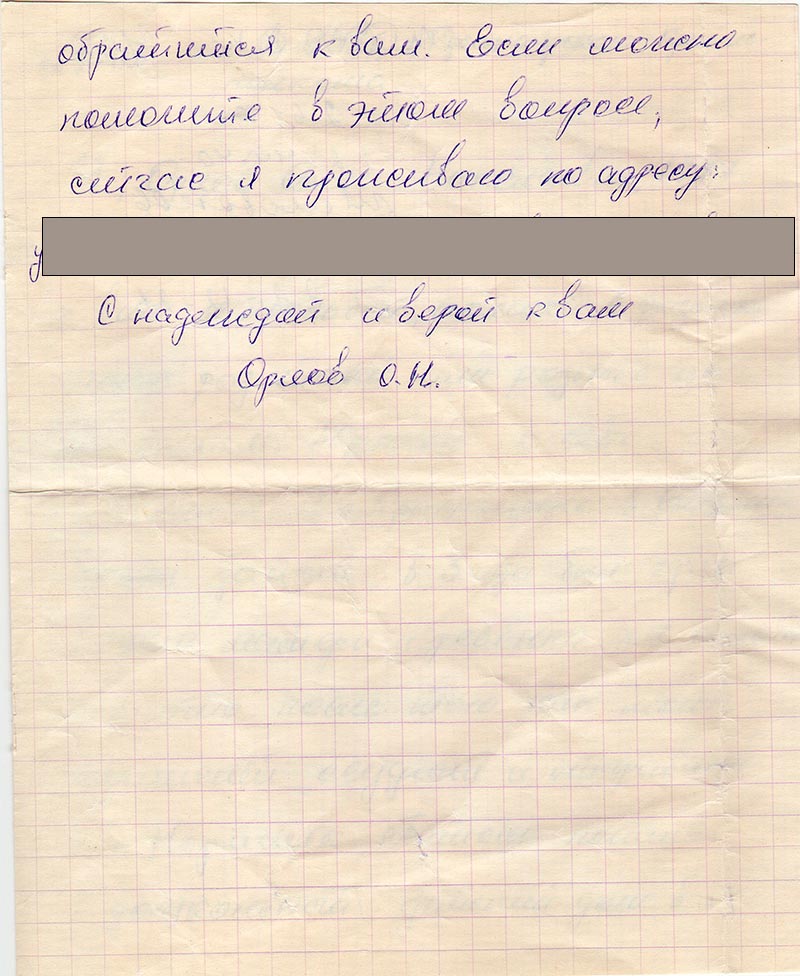 обратится к вам. Если можно
помогите в этом вопросе,
сейчас я проживаю по адресу:
у
С надеждой и верой к вам
Орлов О.Н.